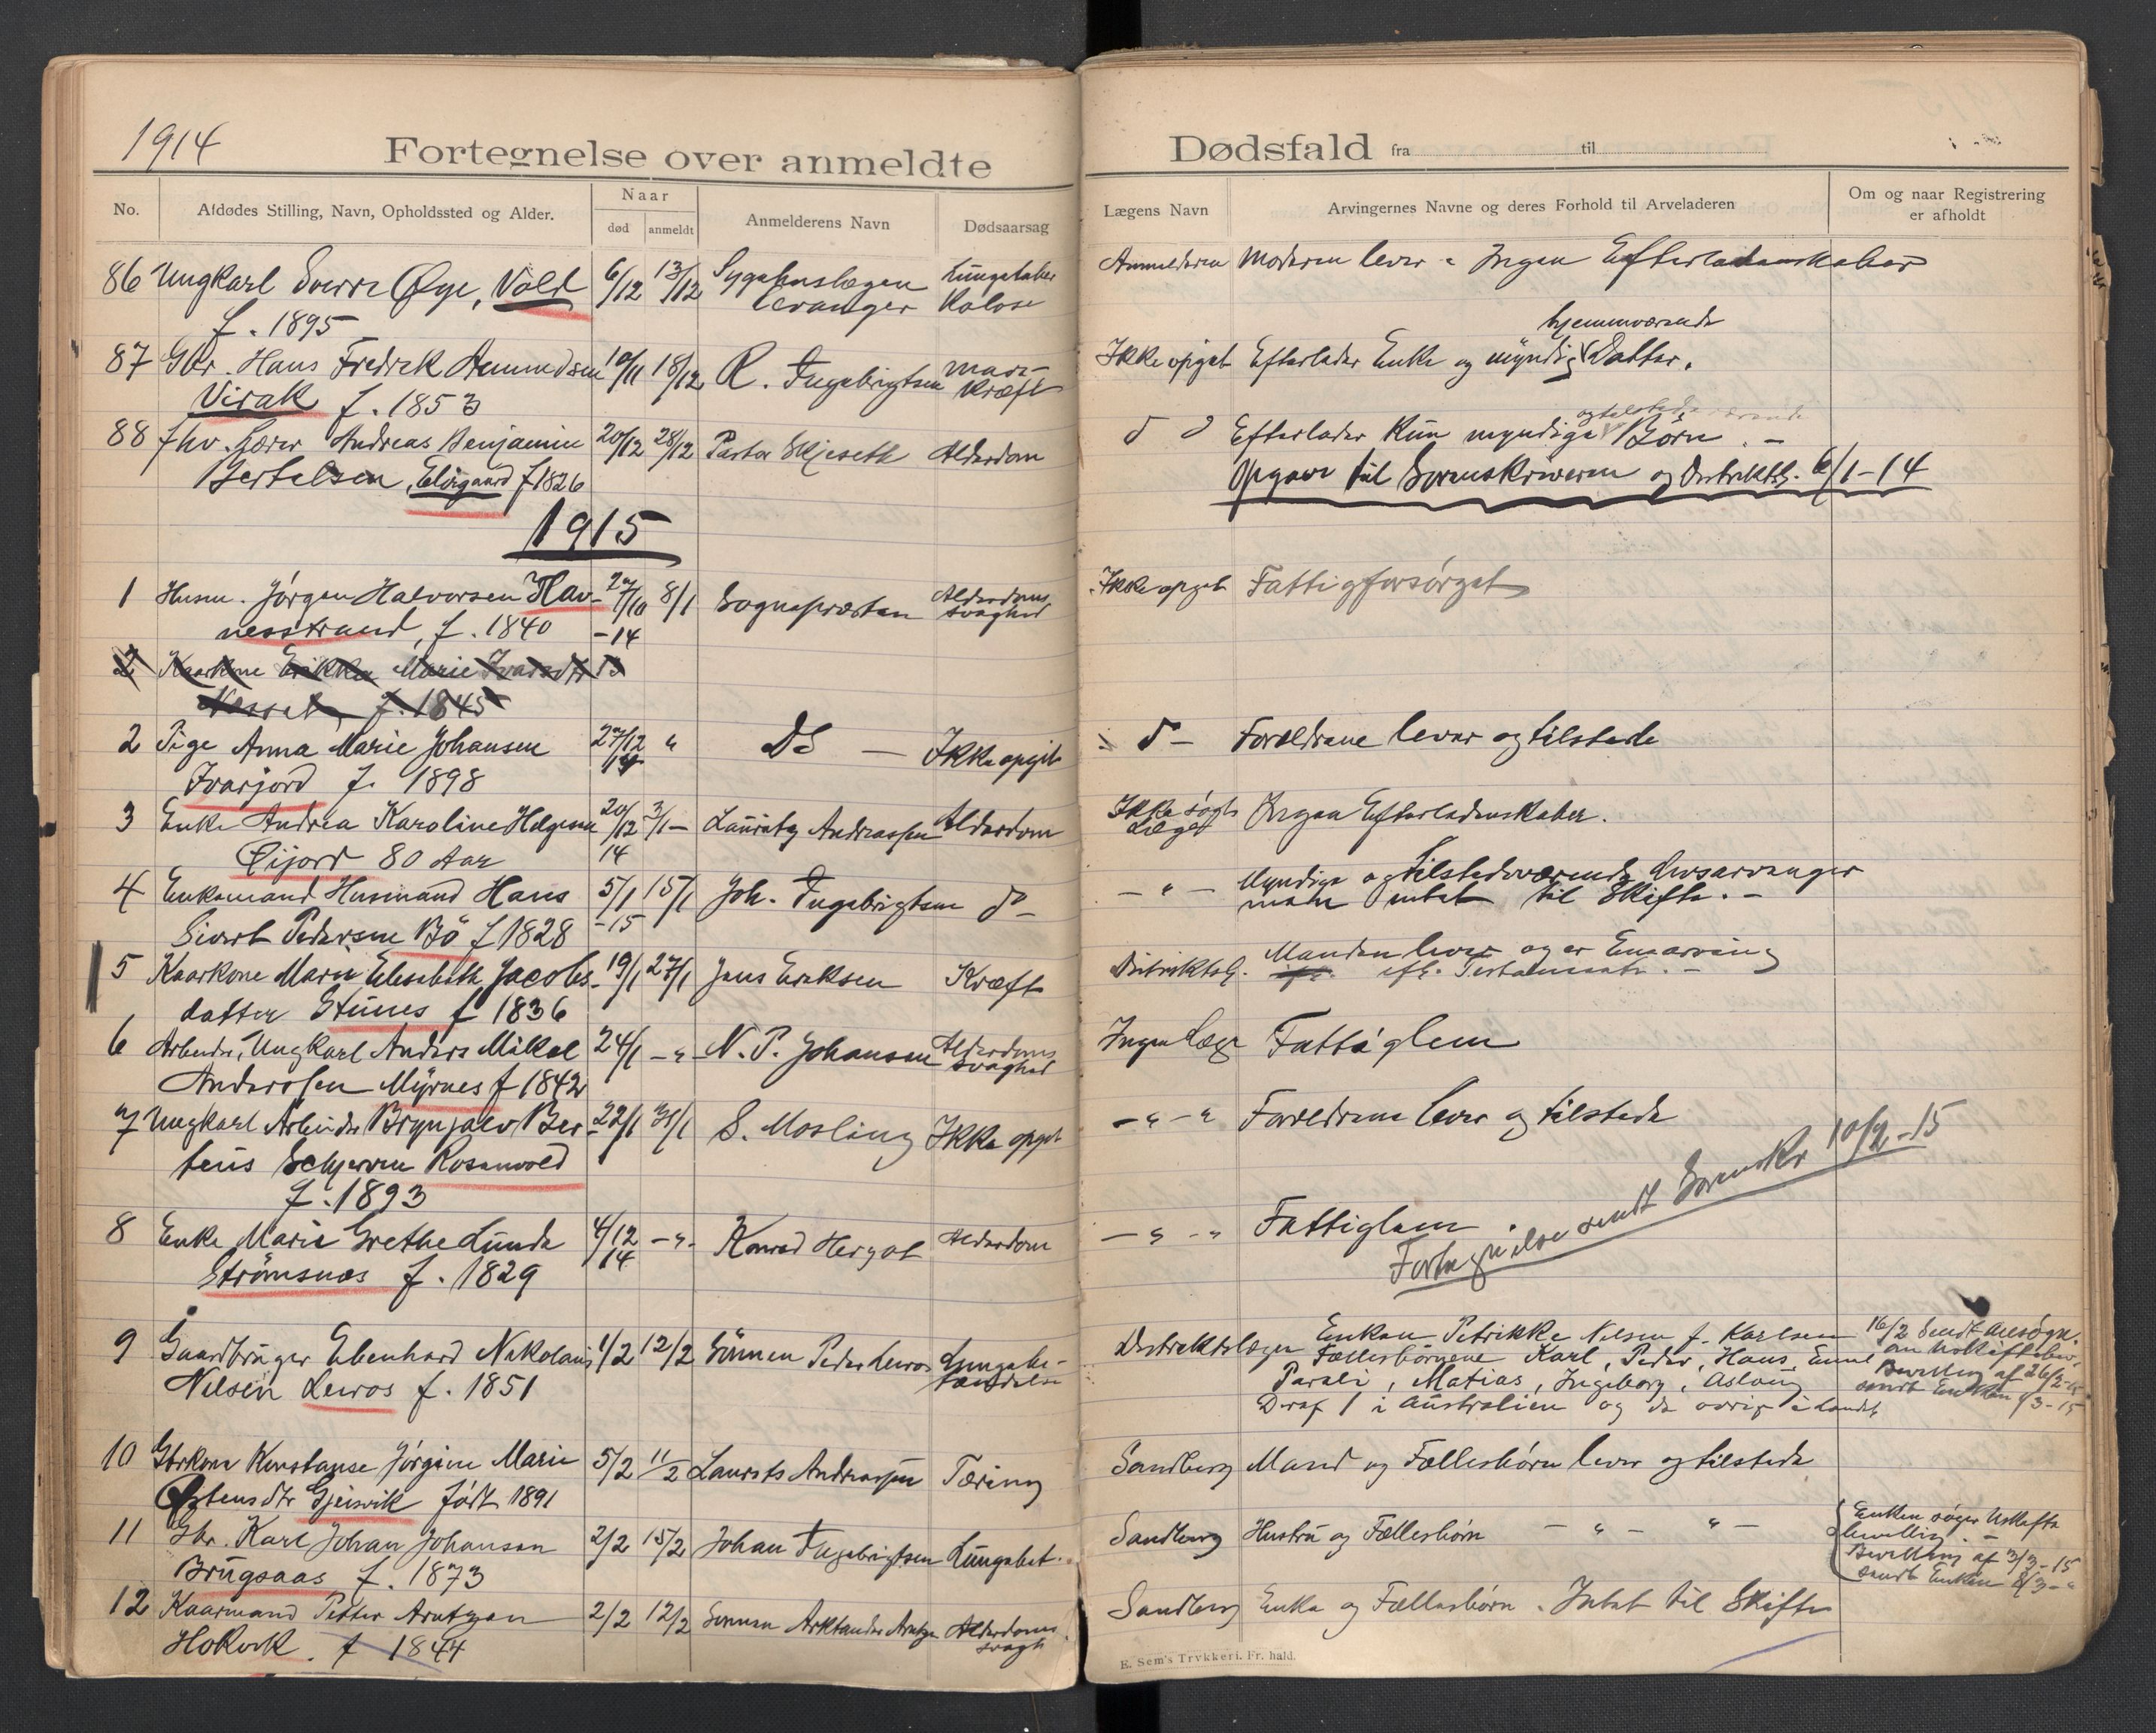 1914
Fortegnelse over anmeldte
No.
Afdødes Stilling, Navn, Opholdssted og Alder.
Naar
død
anmeldt
Anmelderens Navn
Dødsaarsag
86 Ungkarl Sverre Øye, Vold 6/12 13/12 Sygehuslægen Lungetuber
f. 1895 Levanger Kolose
87 Gbr. Hans Fredrik Amundsen 10/11 18/12 R. Ingebrigtsen Mave-
Virak f. 1853 kræft
88 fhv. Lærer Andreas Benjamin 20/12 28/12 Pastor Skjeseth Alderdom
Bertelsen, Elvegaard f 1826
1915
1 Husm. Jørgen Halvorsen Hav- 27/10 8/1 Sognepræsten Alderdoms
nesstrand, f. 1840 -14 svaghed
2 Kaarkone Erikka Marie Ivarsdtr
f. 1845
2 Pige Anna Marie Johansen 27/12 " DS — Ikke opgit
Ivarjord f. 1898 14
3 Enke Andrea Karoline Helgesen 20/12 3/1 - Lauritz Andreassen Alderdom
Øijord 80 Aar 14
4 Enkemand Husmand Hans 5/1 15/1 Joh. Ingebrigtsen do -
Sivert Pedersen Bö f 1828 -15
5 Kaarkone Marie Elisabeth Jacobs- 19/1 27/1 Jens Eriksen Kræft
datter Stunes f 1836
6 Arbeider, Ungkarl Anders Mikal 24/1 - " - N. P. Johansen Alderdoms
Anderssen Myrnes f 1842 svaghed
7 Ungkarl Arbeider Brynjulv Ber- 22/1 31/1 S. Mosling Ikke opgit
teus Schjerven Rosenvold
f. 1893
8 Enke Marie Grethe Lunde 4/12 - " - Konrad Hergot Alderdom
Strömsnæs f. 1829 14
9 Gaardbruger Ebenhard Nikolaus 4/2 12/2 Sönnen Peder Leiros Lungebe-
Nilsen Leiros f. 1851 tændelse
10 Gbrkone Konstanse Jørgine Marie 5/2 11/2 Laurits Andreassen Tæring
Østensdtr Gjeisvik født 1891
11 Gbr. Karl Johan Johansen 2/2 15/2 Johan Ingebrigtsen Lungebet.
Brugsaas f. 1873
12 Kaarmand Petter Arntzen 2/2 12/2 Sönnen Arktander Arntzen Alderdoms
Hokvik. f 1844 svagh
Dødsfald fra til
Lægens Navn
Arvingernes Navne og deres Forhold til Arveladeren
Om og naar Registrering
er afholdt
Anmelderen Moderen lever - Ingen Efterladenskaber
hjemmværende
Ikke opgit Efterlader Enke og myndig Datter.
og tilstedeværende
d d Efterlader kun myndige Børn. -
Opgave til Sorenskriveren og Distriktsl. 6/1-14
Ikke opgit Fattigforsørget
d - Forældrene lever og tilstede
Ikke søgt Ingen Efterladenskaber.
Læge
- " - Myndige og tilstedeværende Livsarvinger
men intet til Skifte. -
Distriktsl. Manden lever og er Enearving
efl. Testamente. -
Ingen Læge Fattiglem
- " - " Forældrene lever og tilstede
- " - " Fattiglem.
Fortegnelse sendt Sorenskr 10/2-15
Distriktslægen Enken Petrikke Nilsen f. Karlsen 16/2 Sendt Ansögn.
Fællesbörnene Karl, Peder, Hans, Emil om Uskiftebev.
Parali, Matias, Ingeborg, Aslaug Bevilling af 26/2-15
Deraf 1 i Australien og de øvrige i Landet sendt Enken 4/3-15
Sandberg Mand og Fællesbørn lever og tilstede
Sandberg Hustru og Fællesbørn - " - " - Enken søger Uskifte
bevilling. -
Bevilling af 3/3-15
sendt Enken 8/3-"
Sandberg Enke og Fællesbørn. Intet til Skifte
E. Sem's Trykkeri. Fr. hald.